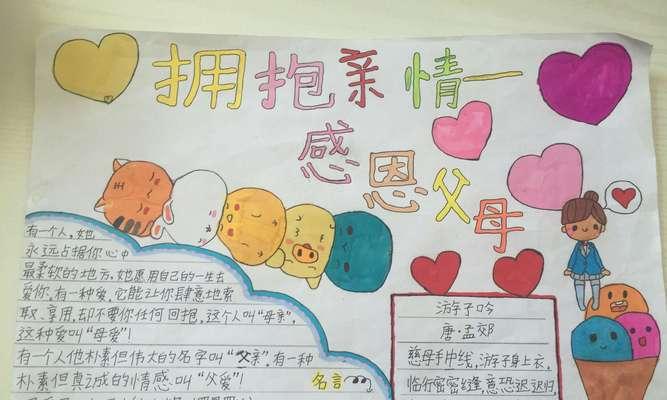 拥抱亲情—
感恩父母
有一个人,她
永远占据你心中
最柔软的地方,她愿用自己的一生去
爱你,有一种爱,它能让你肆意地索
取、享用,却不要你任何回抱,这个人叫“母亲”,
这种爱叫“母爱”!
有一个人他朴素但伟大的名字叫“父亲”,有一种
朴素但真诚的情感,叫“父爱”!
名言
游子吟
唐·孟郊
慈母手中线,游子身上衣,
临行密密缝,意恐迟迟归,